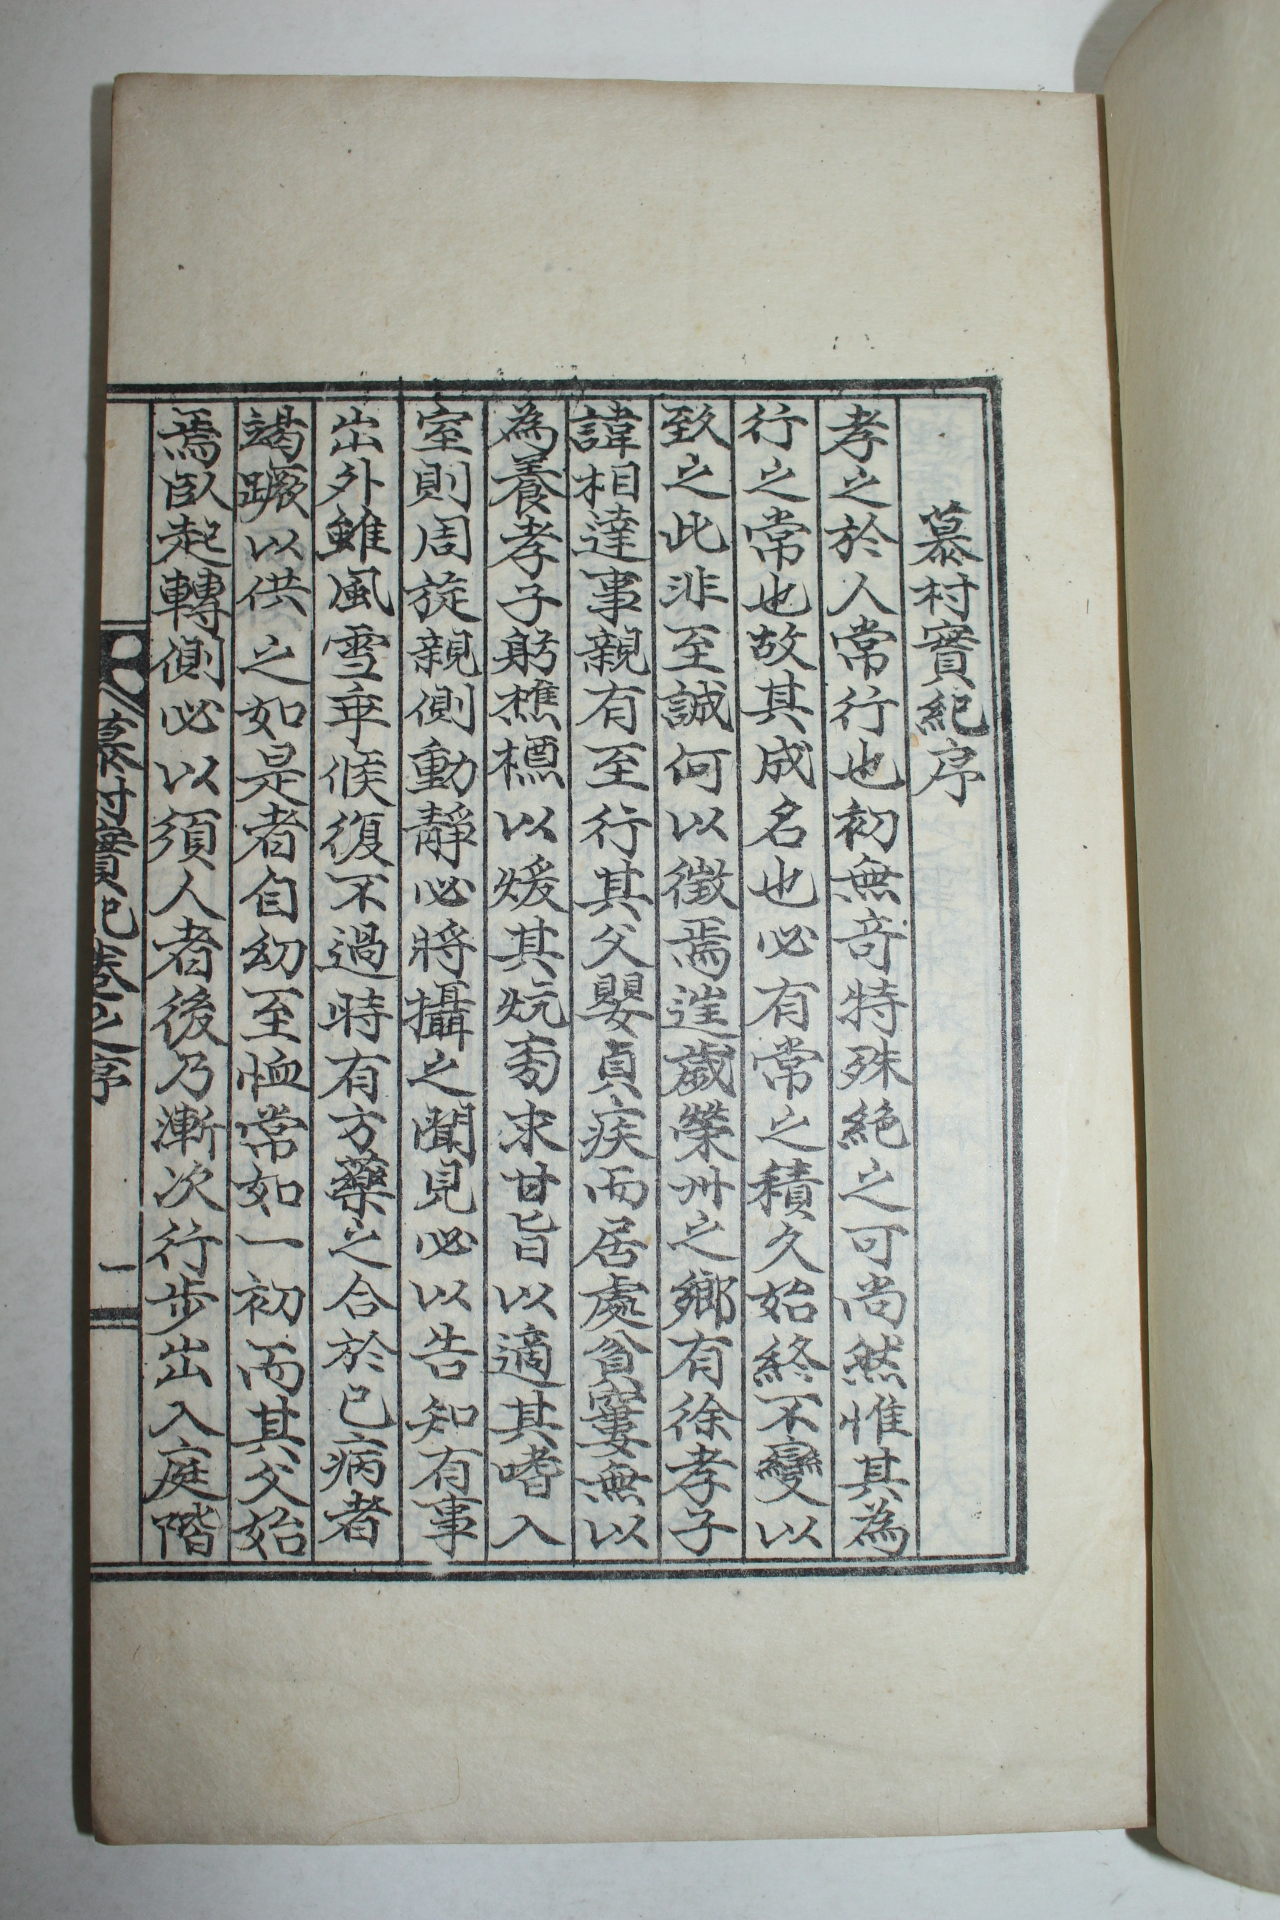 慕村實紀序
孝之於人常行也初無奇特殊絶之可尚然惟其為
行之常也故其成名也必有常之積久始終不變以
致之此非至誠何以徵焉遑歲榮州之鄉有徐孝子
諱相達事親有至行其父嬰貞疾而居處貧窶無以
為養孝子躬樵檟以煖其炕匃求甘旨以適其嗜入
室則周旋親側動靜必將攝之聞見必以告知有事
出外雖風雪乖候復不過時有方藥之合於已病者
竭蹶以供之如是者自幼至恤常如一初而其父始
焉臥起轉側必以須人者後乃漸次行步出入庭階
慕村實紀卷之序
一